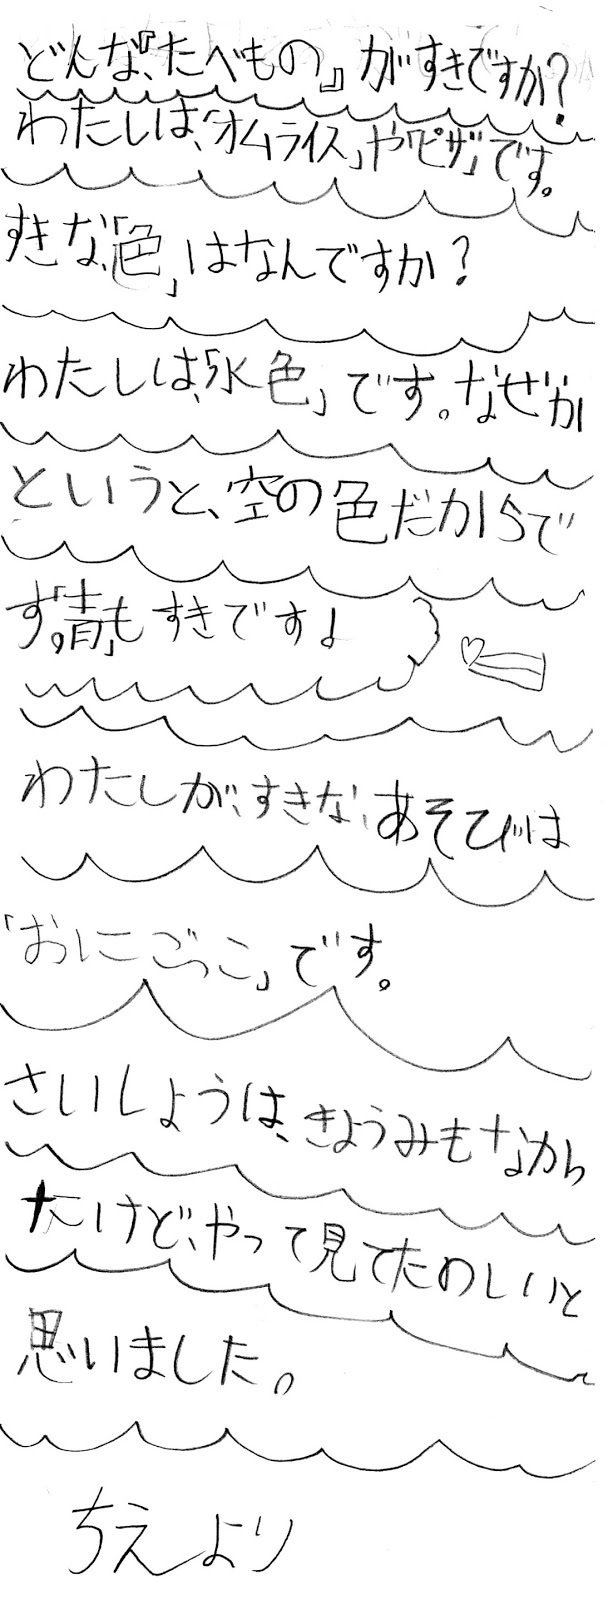 どんな、『たべもの』がすきですか？
わたしは、「オムライス」や「ピザ」です。
すきな、「色」はなんですか？
わたしは、「水色」です。なぜか
というと、空の色だからで
す。「青」もすきです！
わたしが、すきな、あそびは
「おにごっこ」です。
さいしょうは、きょうみもなかっ
たけど、やって見てたのしいと
思いました。
ちえより